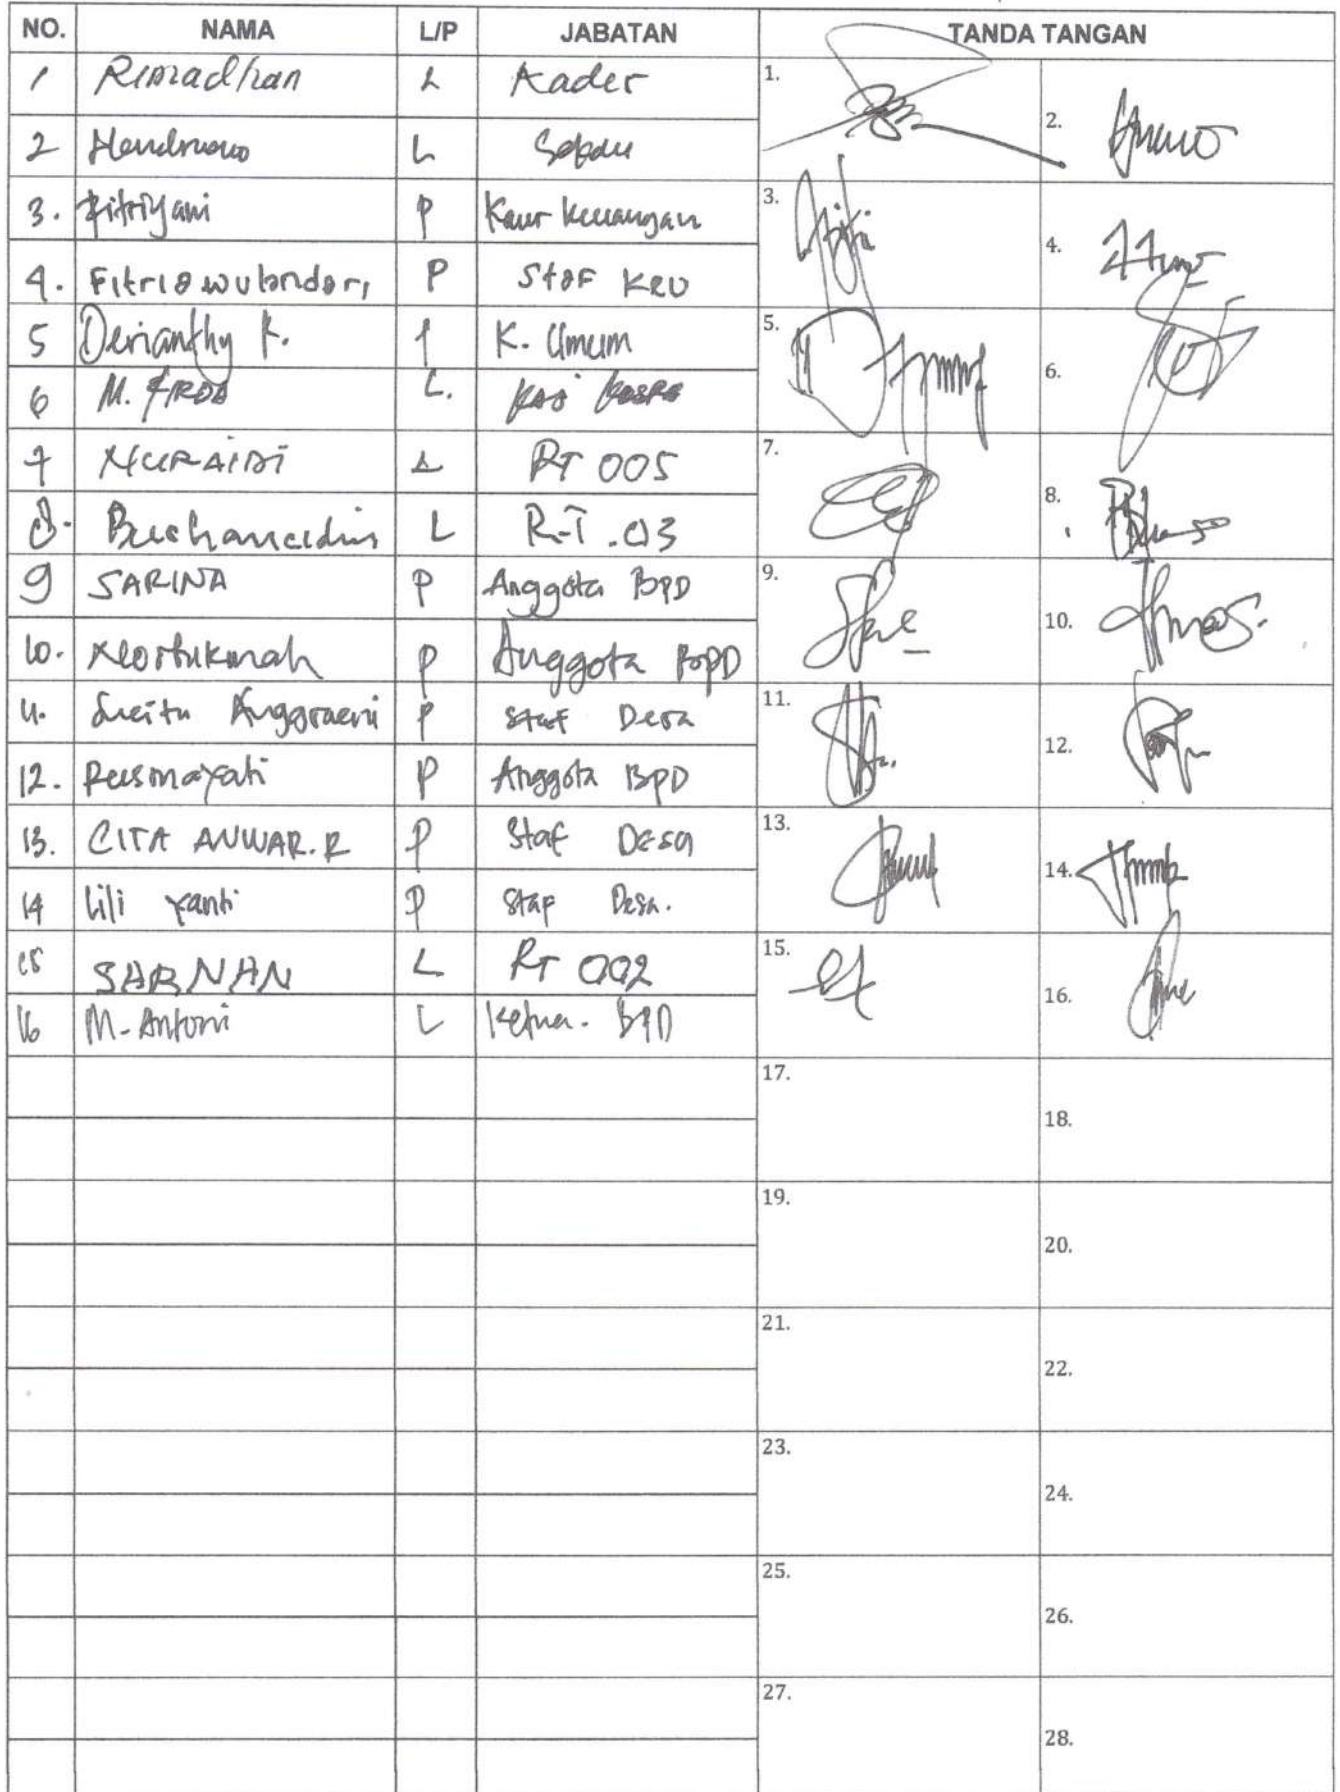 NO. NAMA L/P JABATAN TANDA TANGAN
1 Ramadhan L Kader 1.
2 L 2.
3. Fitriyani P Kaur Keuangan 3.
4. Fitria wulandari P Staf KeU 4.
5 Derianthy P. P K. Umum 5.
6 M. FIRDA L. 6.
7 NURAIDI L RT 005 7.
8. Burhanuddin L R.T. 03 8.
9 SARINA P Anggota BPD 9.
10. P Anggota BPD 10.
11. Anggraeni P Staf Desa 11.
12. Rusmayati P Anggota BPD 12.
13. CITA ANWAR.R P Staf Desa 13.
14 Lili yanti P Staf Desa. 14.
15 SARNAN L RT 002 15.
16 M. Antoni L Ketua. BPD 16.
17.
18.
19.
20.
21.
22.
23.
24.
25.
26.
27.
28.